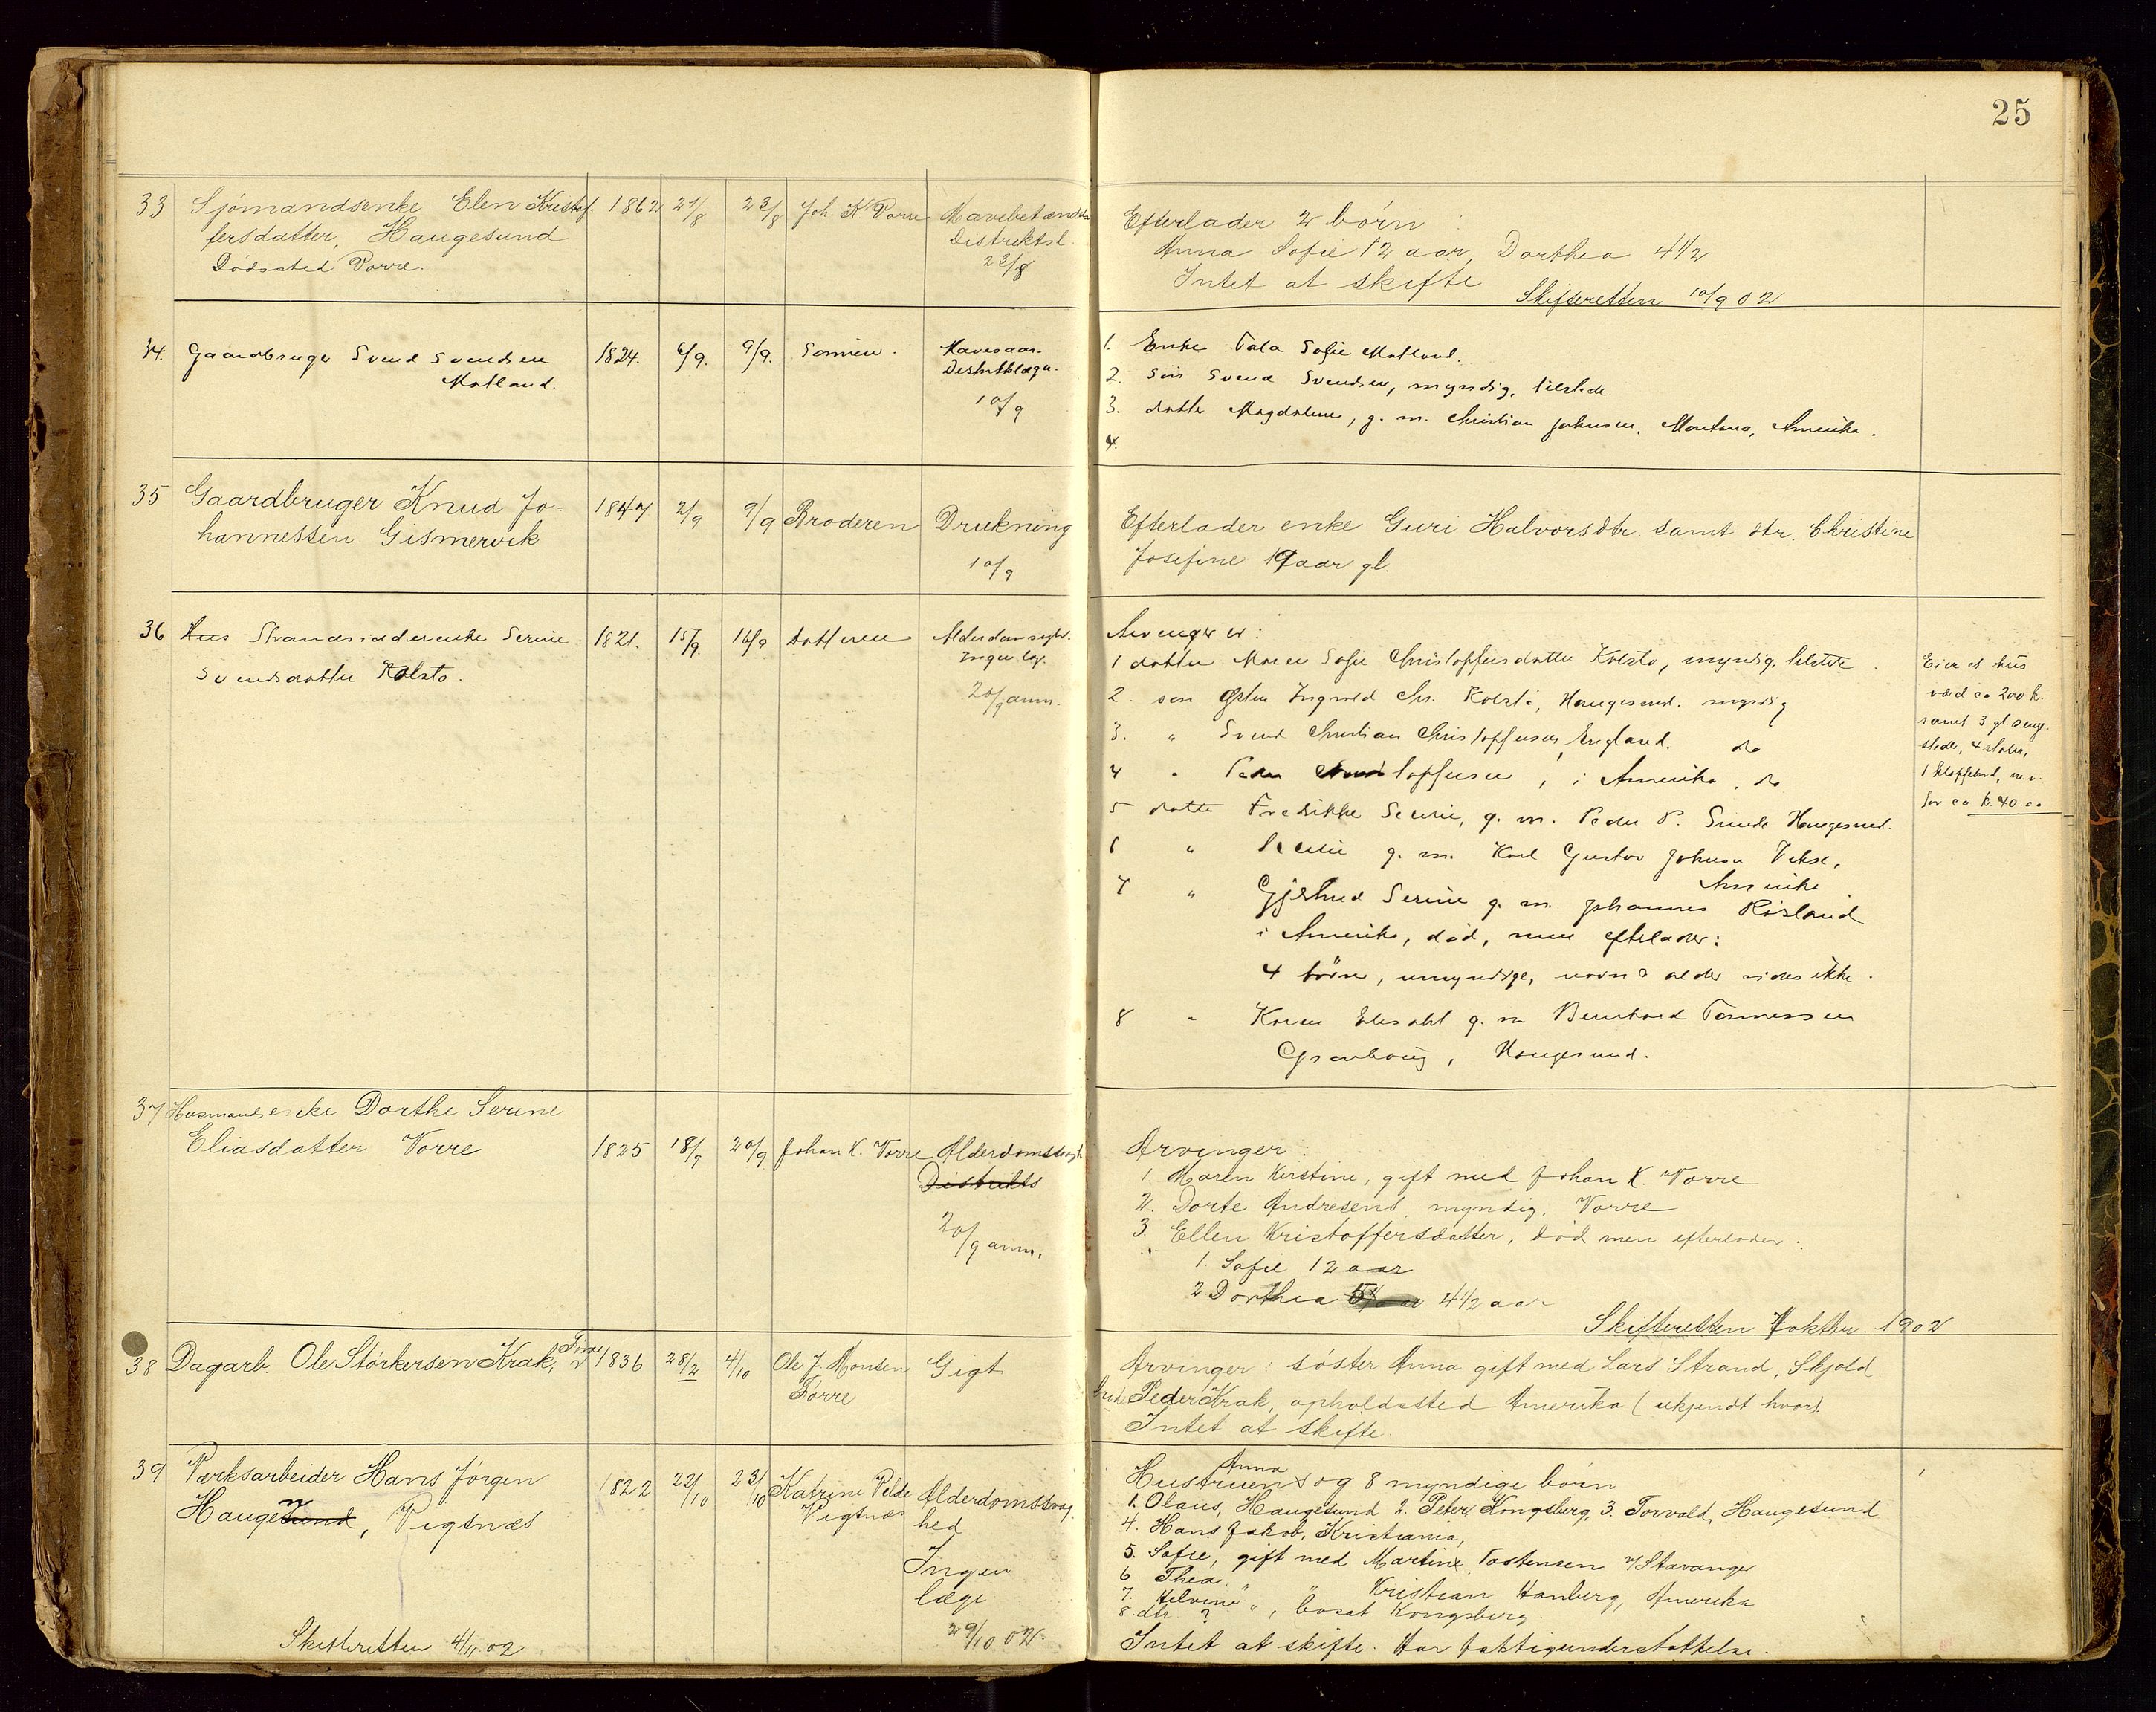 25
33 Sjómandsenke Elen Kristof- 1862 21/8 23/8 Joh. K Vorre Mavebetændelse
fersdatter, Haugesund Distriktsl
Dödssted Vorre. 23/8
Efterlader 2 börn :
Anna Sofie 12 aar, Dorthea 4 1/2
Intet at skifte
Skifteretten 10/9 02
34. Gaardbruger Svend Svendsen 1824. 6/9. 9/9. Sönnen. Mavesaar.
Matland. Distriktslæge.
10/9
1. Enke Tala Sofie Matland.
2. sön Svend Svendsen, myndig, tilstede
3. datter Magdalene, g. m. Christian Johnsen, Montana, Amerika.
4.
35 Gaardbruger Knud Jo- 1847 2/9 9/9 Broderen Drukning
hannessen Gismervik
10/9
Efterlader enke Guri Halvorsdtr. samt dtr. Christine
Josefine 19 aar gl.
36 Strandsidderenke Serine 1821. 15/9. 16/9 Datteren Alderdomssvagh.
Svendsdatter Kolstö. Ingen læge.
20/9 anm.
Arvinger er:
1 datter Maren Sofie Christophersdatter Kolstö, myndig, tilstede.
2. sön Ingvald Chr. Kolstö, Haugesund. myndig
3. " Svend Christian Christophersen, England. do
4 " Peder Christophersen, i Amerika. do
5 datter Fredrikke Serine, g. m. Peder P. Sunde Haugesund.
6 " g. m. Karl Gustav Johnsen Vikse,
Amerika.
7 " Gjertrud Serine g. m. Johannes Rösland
i Amerika, död, men efterlader:
4 börn, umyndige, navn & alder vides ikke.
8 " Karen Elisabet g. m Bernhard Tönnessen
Grønhaug, Haugesund.
Eier et hus
værd ca 200 k.
samt 3 gl. seng-
steder, 4 stoler,
1 klapbord, m. v.
for ca k. 40.00
37 Husmandsenke Dorthe Serine
Eliasdatter Vorre 1825 18/9 20/9 Johan K. Vorre Alderdomssvagh
Distrikts
20/9 anm.
Arvinger:
1. Maren Kirstine, gift med Johan K. Vorre
2. Dorte Andresens, myndig. Vorre
3. Ellen Kristoffersdatter, död men efterlader:
1. Sofie 12 aar
2 Dorthea 4 1/2 aar
Skifteretten 7 oktbr. 1902
38 Dagarb. Ole Störkersen Krak, 1836 28/2 4/10 Ole J. Monsen Gigt
Förre
Arvinger: söster Anna gift med Lars Strand, Skjold
Peder Krak, opholdssted Amerika (ukjendt hvor).
Intet at skifte.
39 Værksarbeider Hans Jörgen 1822 22/10 23/10 Katrine Velde Alderdomssvag.
Haugesund, Vigsnæs Vigsnæs hed
Ingen
læge
29/10 02.
Skifteretten 4/11. 02
Hustruen Anna og 8 myndige börn
1. Olaus, Haugesund 2. Peter, Kongsberg, 3. Torvald, Haugesund
4. Hans Jakob, Kristiania,
5. Sofie, gift med Martin Tostensen Stavanger
6. Thea " " Kristian Hanberg, Amerika
7. Helvine " , bosat Kongsberg.
8. dtr ?
Intet at skifte. Har fattigunderstøttelse.